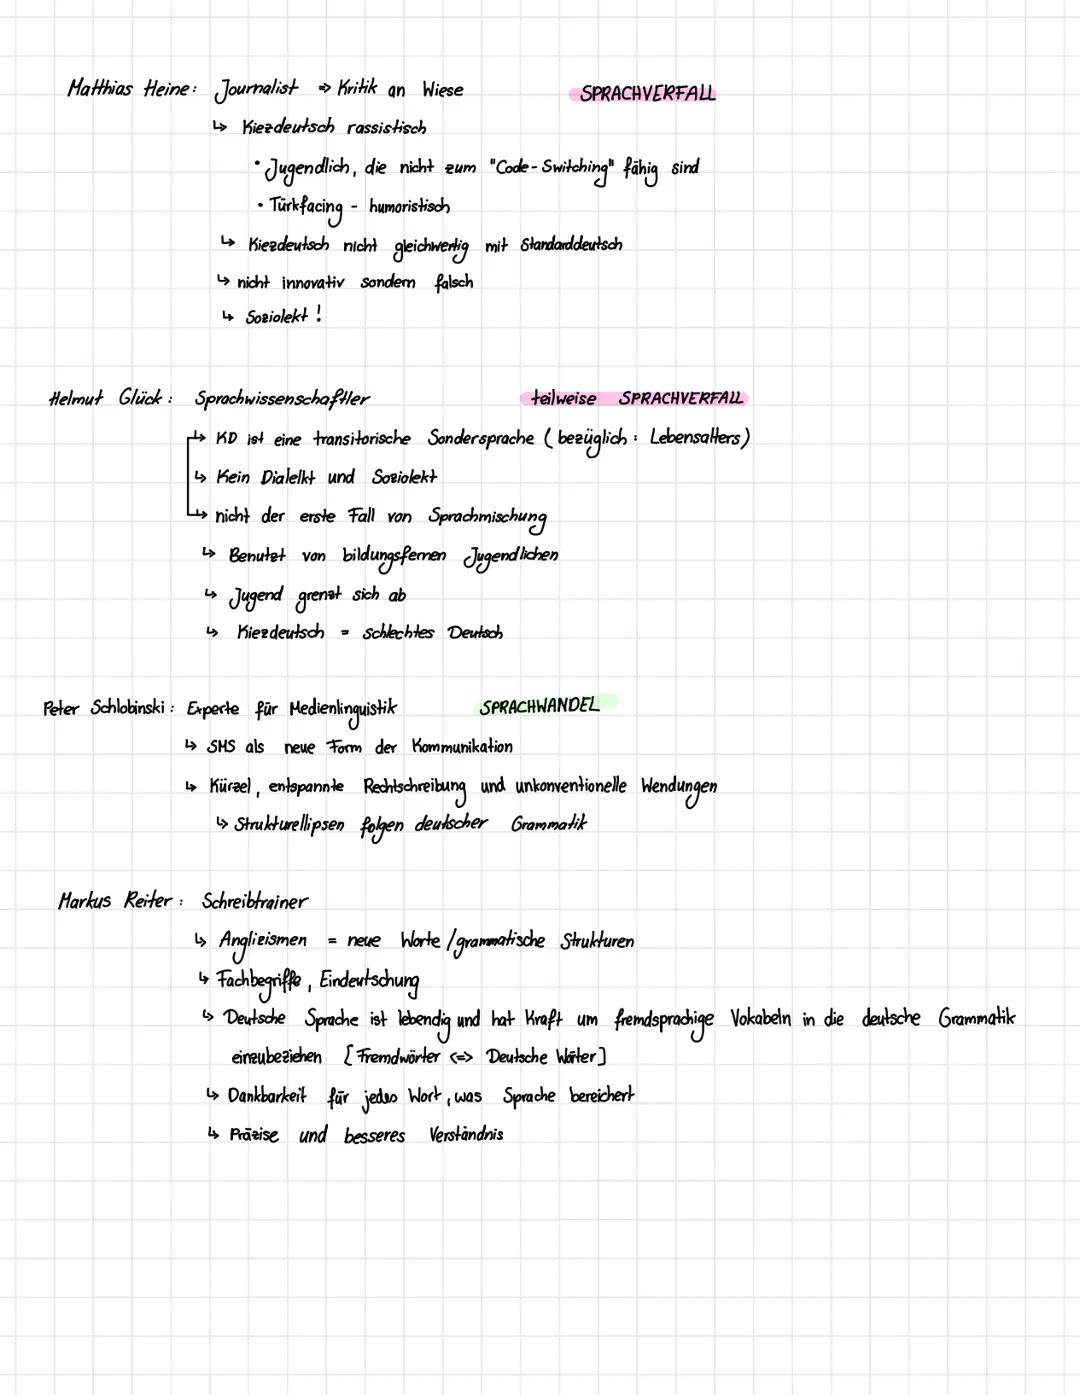 Matthias Heine: Journalist => Kritik an Wiese SPRACHVERFALL
↳ Kiezdeutsch rassistisch
• Jugendlich, die nicht zum "Code-Switching" fähig sind
• Türkfacing - humoristisch
↳ Kiezdeutsch nicht gleichwertig mit Standarddeutsch
↳ nicht innovativ sondern falsch
↳ Soziolekt !
Helmut Glück: Sprachwissenschaftler teilweise SPRACHVERFALL
↳ KD ist eine transitorische Sondersprache (bezüglich: Lebensalters)
↳ Kein Dialelkt und Soziolekt
↳ nicht der erste Fall von Sprachmischung
↳ Benutzt von bildungsfernen Jugendlichen
↳ Jugend grenzt sich ab
↳ Kiezdeutsch = schlechtes Deutsch
Peter Schlobinski: Experte für Medienlinguistik SPRACHWANDEL
↳ SMS als neue Form der Kommunikation
↳ Kürzel, entspannte Rechtschreibung und unkonventionelle Wendungen
↳ Strukturellipsen folgen deutscher Grammatik
Markus Reiter: Schreibtrainer
↳ Anglizismen = neue Worte/grammatische Strukturen
↳ Fachbegriffe, Eindeutschung
↳ Deutsche Sprache ist lebendig und hat Kraft um fremdsprachige Vokabeln in die deutsche Grammatik
einzubeziehen [Fremdwörter <=> Deutsche Wörter]
↳ Dankbarkeit für jedes Wort, was Sprache bereichert
↳ Präzise und besseres Verständnis